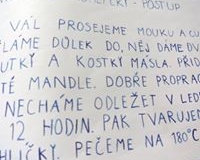 - POSTUP
VÁL PROSEJEME MOUKU A CU
LÁME DŮLEK DO, NĚJ DÁME DV
UTKY A KOSTKY MÁSLA. PŘID
TÉ MANDLE. DOBŘE PROPRAC
NECHÁME ODLEŽET V LED
12 HODIN. PAK TVARUJEM
HLÍČKY. PEČEME NA 180°C